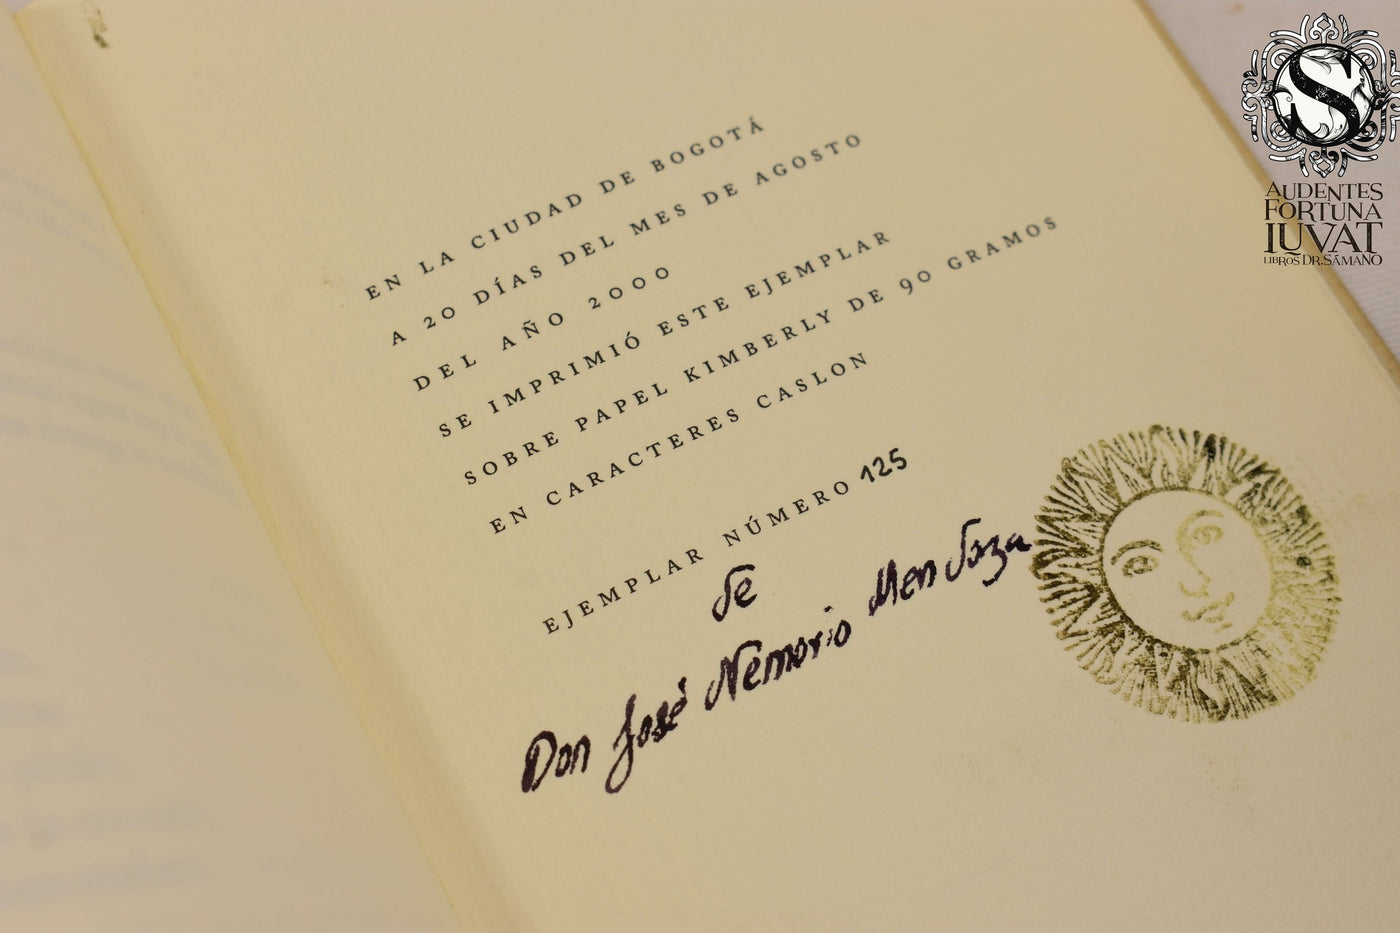 EN LA CIUDAD DE BOGOTÁ
A 20 DÍAS DEL MES DE AGOSTO
DEL AÑO 2000
SE IMPRIMIÓ ESTE EJEMPLAR
SOBRE PAPEL KIMBERLY DE 90 GRAMOS
EN CARACTERES CASLON
EJEMPLAR NÚMERO 125
de
Don José Nemorio Mendoza
S
AUDENTES
FORTUNA
IUVAT
LIBROS DR. SÁMANO